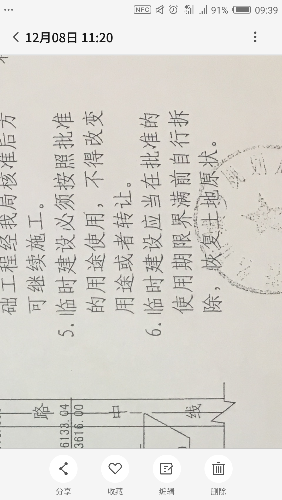 NFC 91% 09:39
12月08日 11:20
础工程经我局核准后方
可继续施工。
5. 临时建设必须按照批准
的用途使用，不得改变
用途或者转让。
6. 临时建设应当在批准的
使用期限界满前自行拆
除，恢复土地原状。
路 中 线
6138.04
3616.00
分享 收藏 编辑 删除